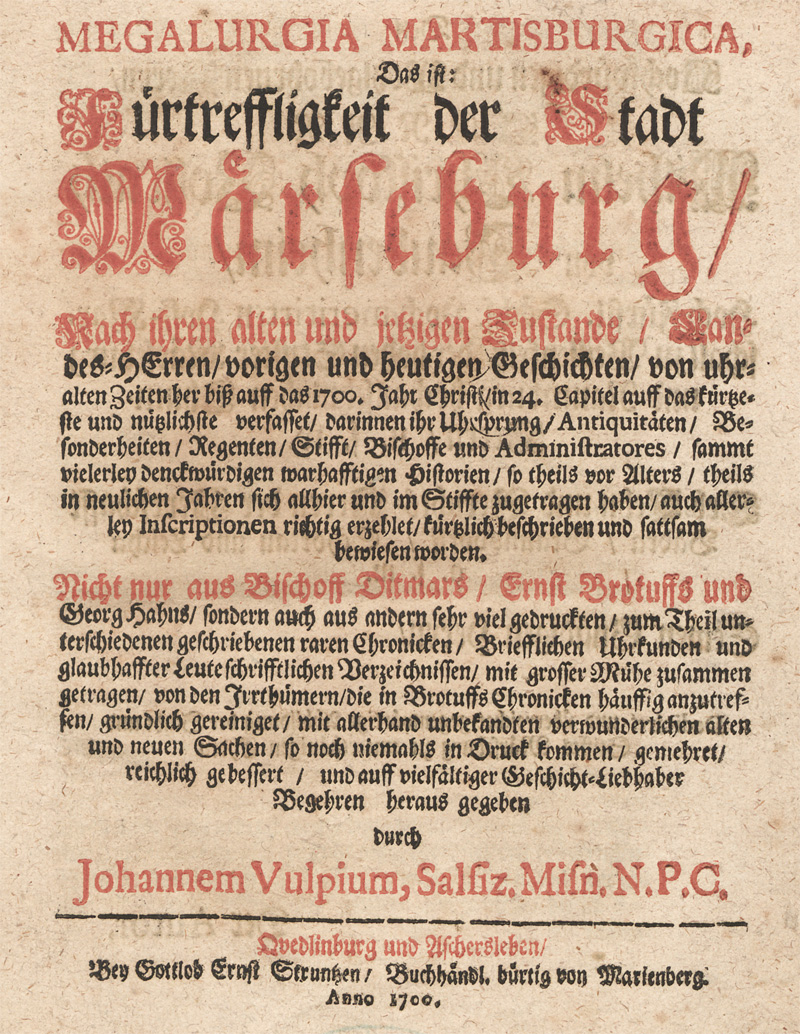 MEGALURGIA MARTISBURGICA,
Das ist:
Fürtreffligkeit der Stadt
Märseburg/
Nach ihren alten und jetzigen Zustande / Lan-
des-HErren/ vorigen und heutigen Geschichten/ von uhr-
alten Zeiten her biß auff das 1700. Jahr Christi/ in 24. Capitel auff das kürtze-
ste und nützlichste verfasset/ darinnen ihr Uhrsprung/ Antiquitäten/ Be-
sonderheiten / Regenten/ Stifft/ Bischoffe und Administratores / sammt
vielerley denckwürdigen warhafftigen Historien/ so theils vor Alters / theils
in neulichen Jahren sich allhier und im Stiffte zugetragen haben/ auch aller-
ley Inscriptionen richtig erzehlet/ kürtzlich beschrieben und sattsam
bewiesen worden.
Nicht nur aus Bischoff Ditmars / Ernst Brotuffs und
Georg Hahns/ sondern auch aus andern sehr viel gedruckten/ zum Theil un-
terschiedenen geschriebenen raren Chronicken/ Briefflichen Uhrkunden und
glaubhaffter Leute schrifftlichen Verzeichnissen/ mit grosser Mühe zusammen
getragen/ von den Irrthümern/ die in Brotuffs Chronicken häuffig anzutref-
fen/ gründlich gereiniget/ mit allerhand unbekandten verwunderlichen alten
und neuen Sachen/ so noch niemahls in Druck kommen/ gemehret/
reichlich gebessert / und auff vielfältiger Geschicht-Liebhaber
Begehren heraus gegeben
durch
Johannem Vulpium, Salsiz. Misn. N. P. C.
Qvedlinburg und Aschersleben/
Bey Gottlob Ernst Struntzen/ Buchhändl. bürtig von Marienberg.
Anno 1700.